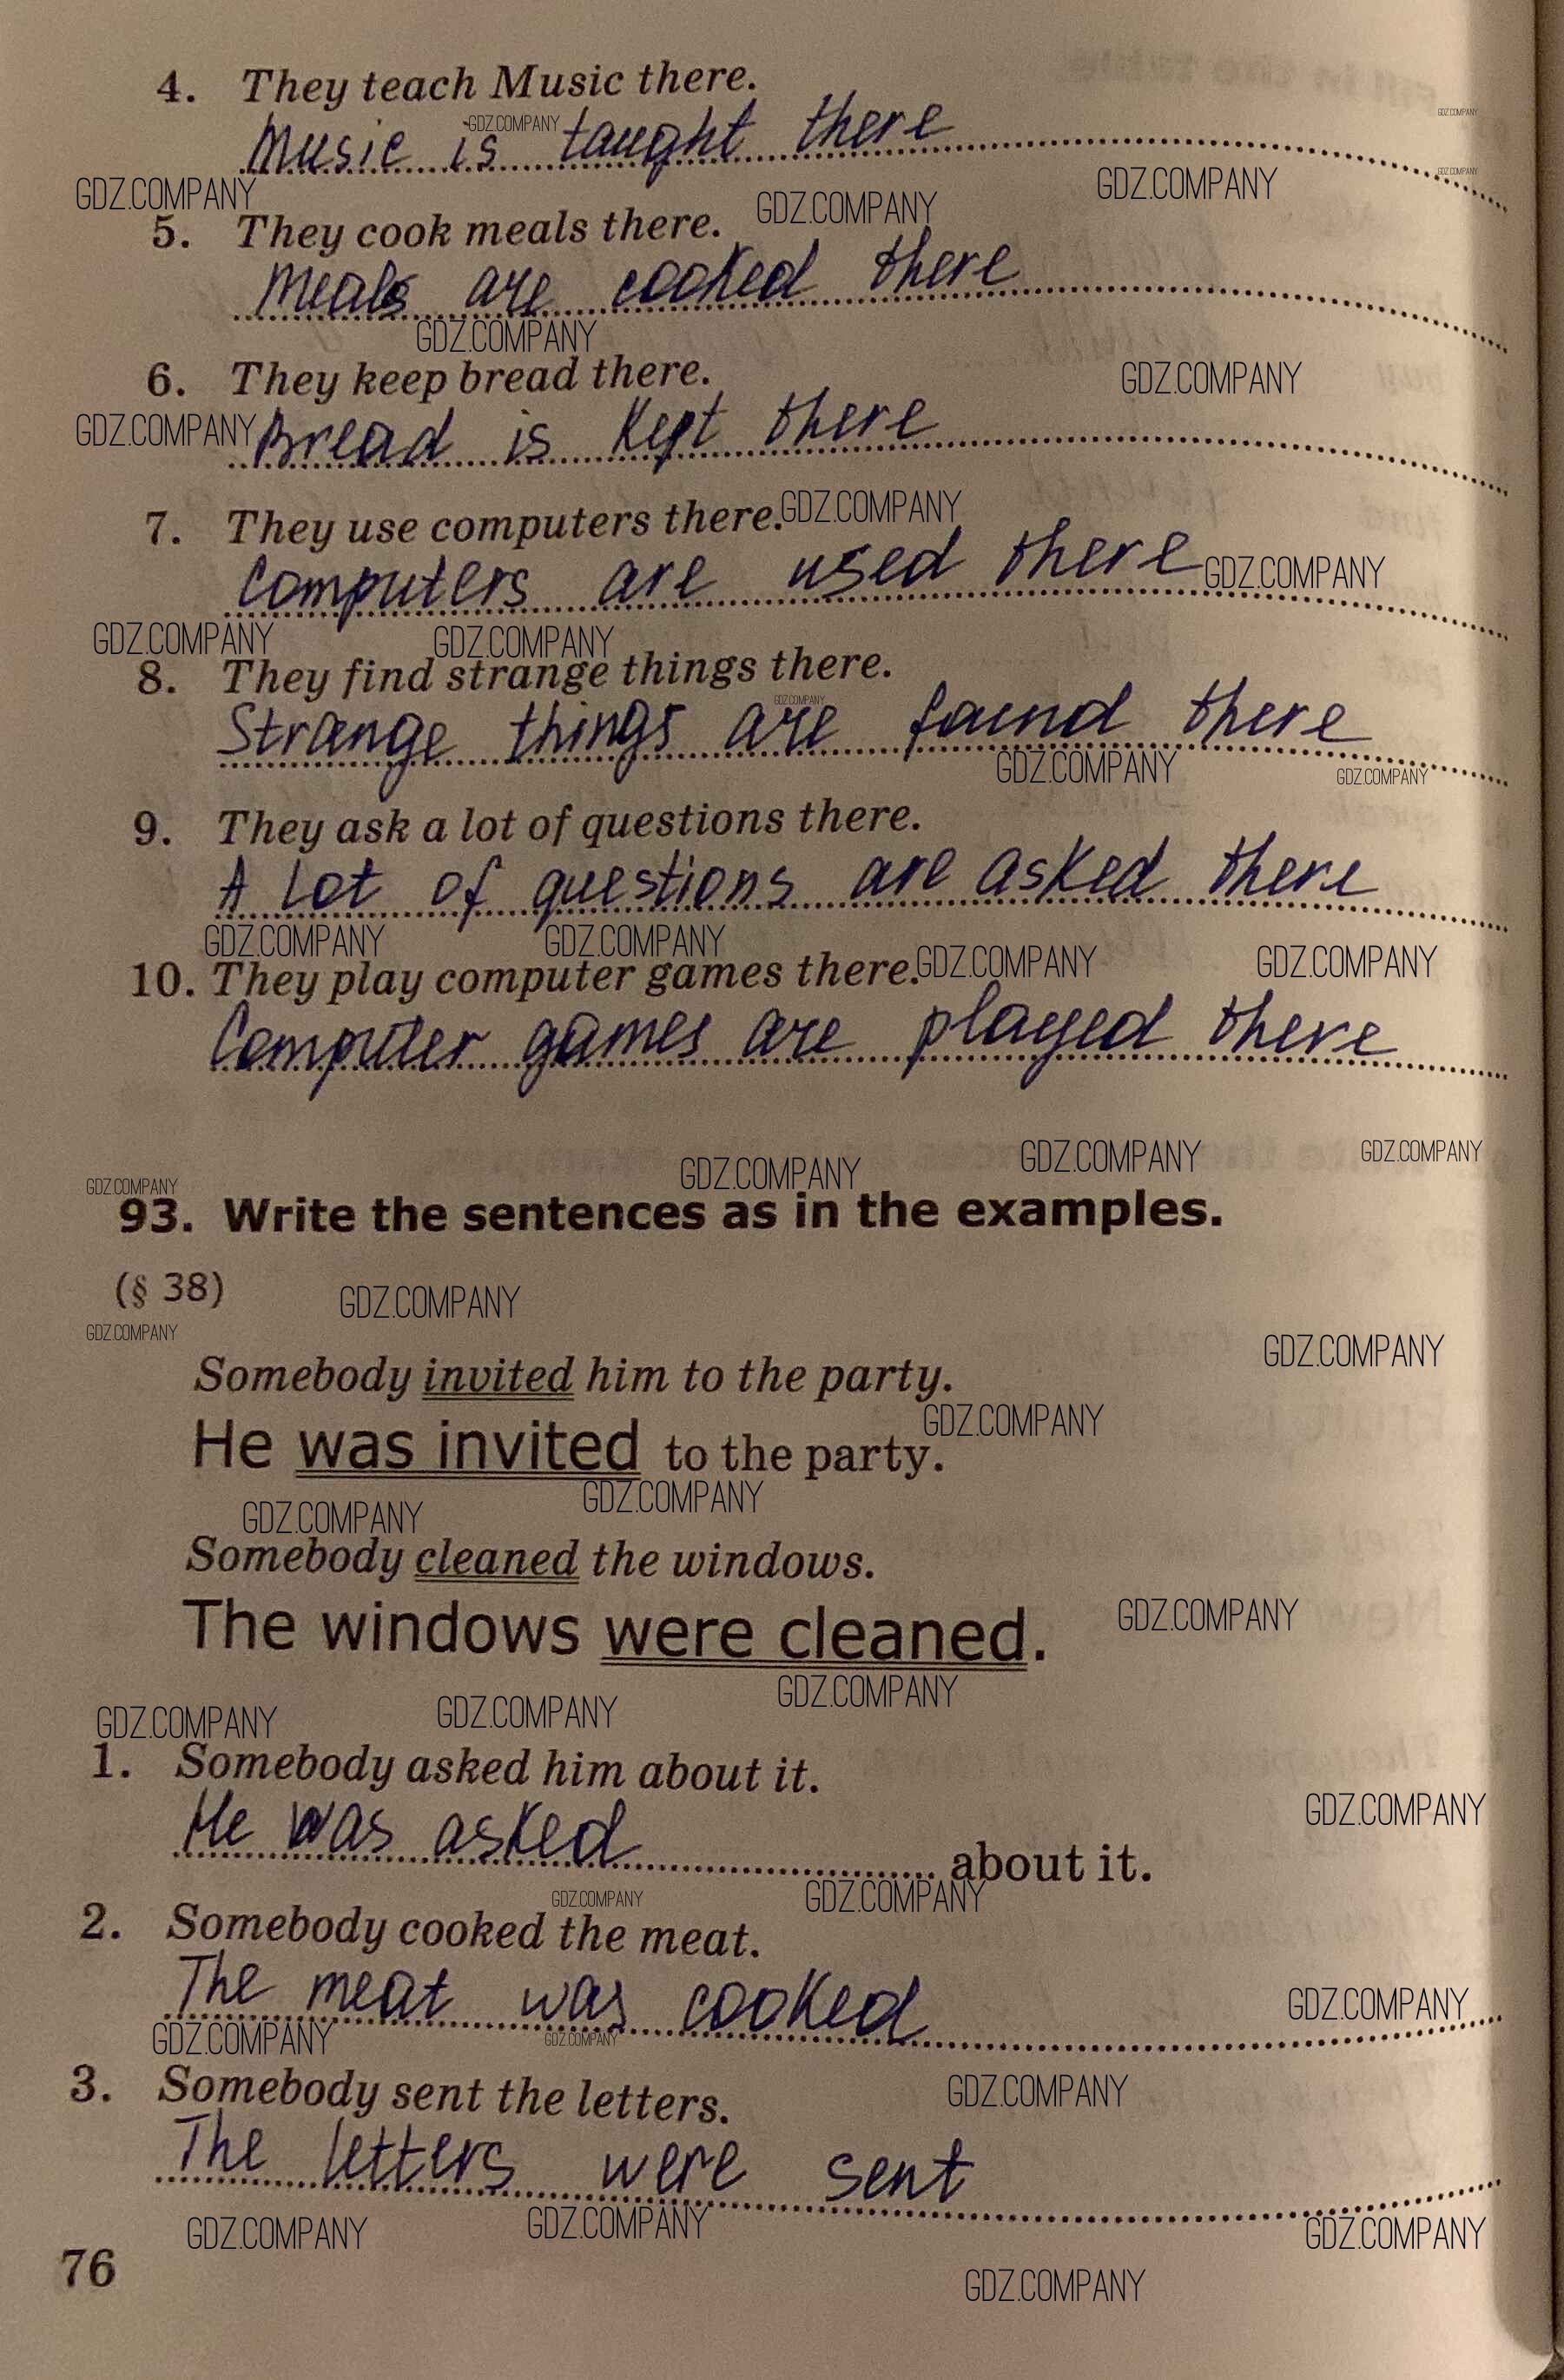 4. They teach Music there.
Music is taught there
5. They cook meals there.
Meals are cooked there
6. They keep bread there.
Bread is kept there
7. They use computers there.
Computers are used there
8. They find strange things there.
Strange things are found there
9. They ask a lot of questions there.
A lot of questions are asked there
10. They play computer games there.
Computer games are played there
93. Write the sentences as in the examples.
(§ 38)
Somebody invited him to the party.
He was invited to the party.
Somebody cleaned the windows.
The windows were cleaned.
1. Somebody asked him about it.
He was asked about it.
2. Somebody cooked the meat.
The meat was cooked
3. Somebody sent the letters.
The letters were sent
76
GDZ.COMPANY